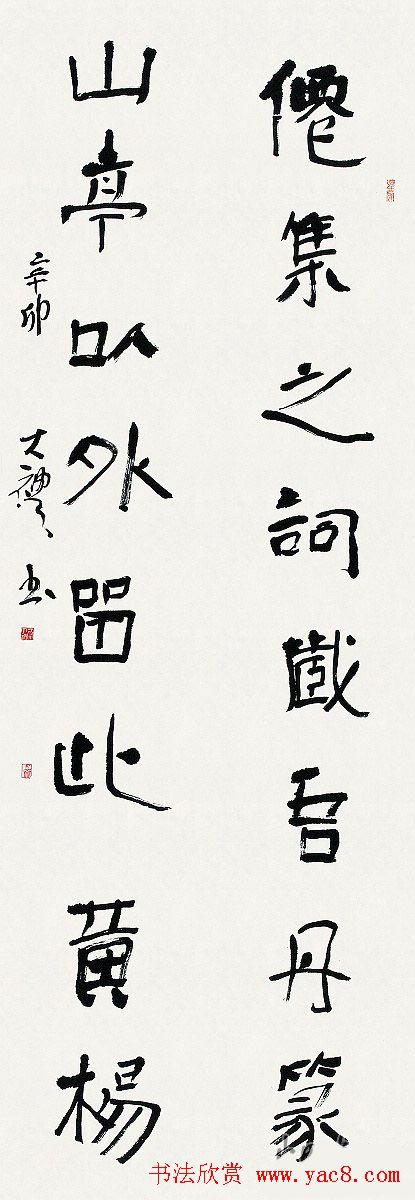 僊集之詞藏吾丹篆
山亭以外留此黃楊
辛卯 大禮 书
书法欣赏 www.yac8.com